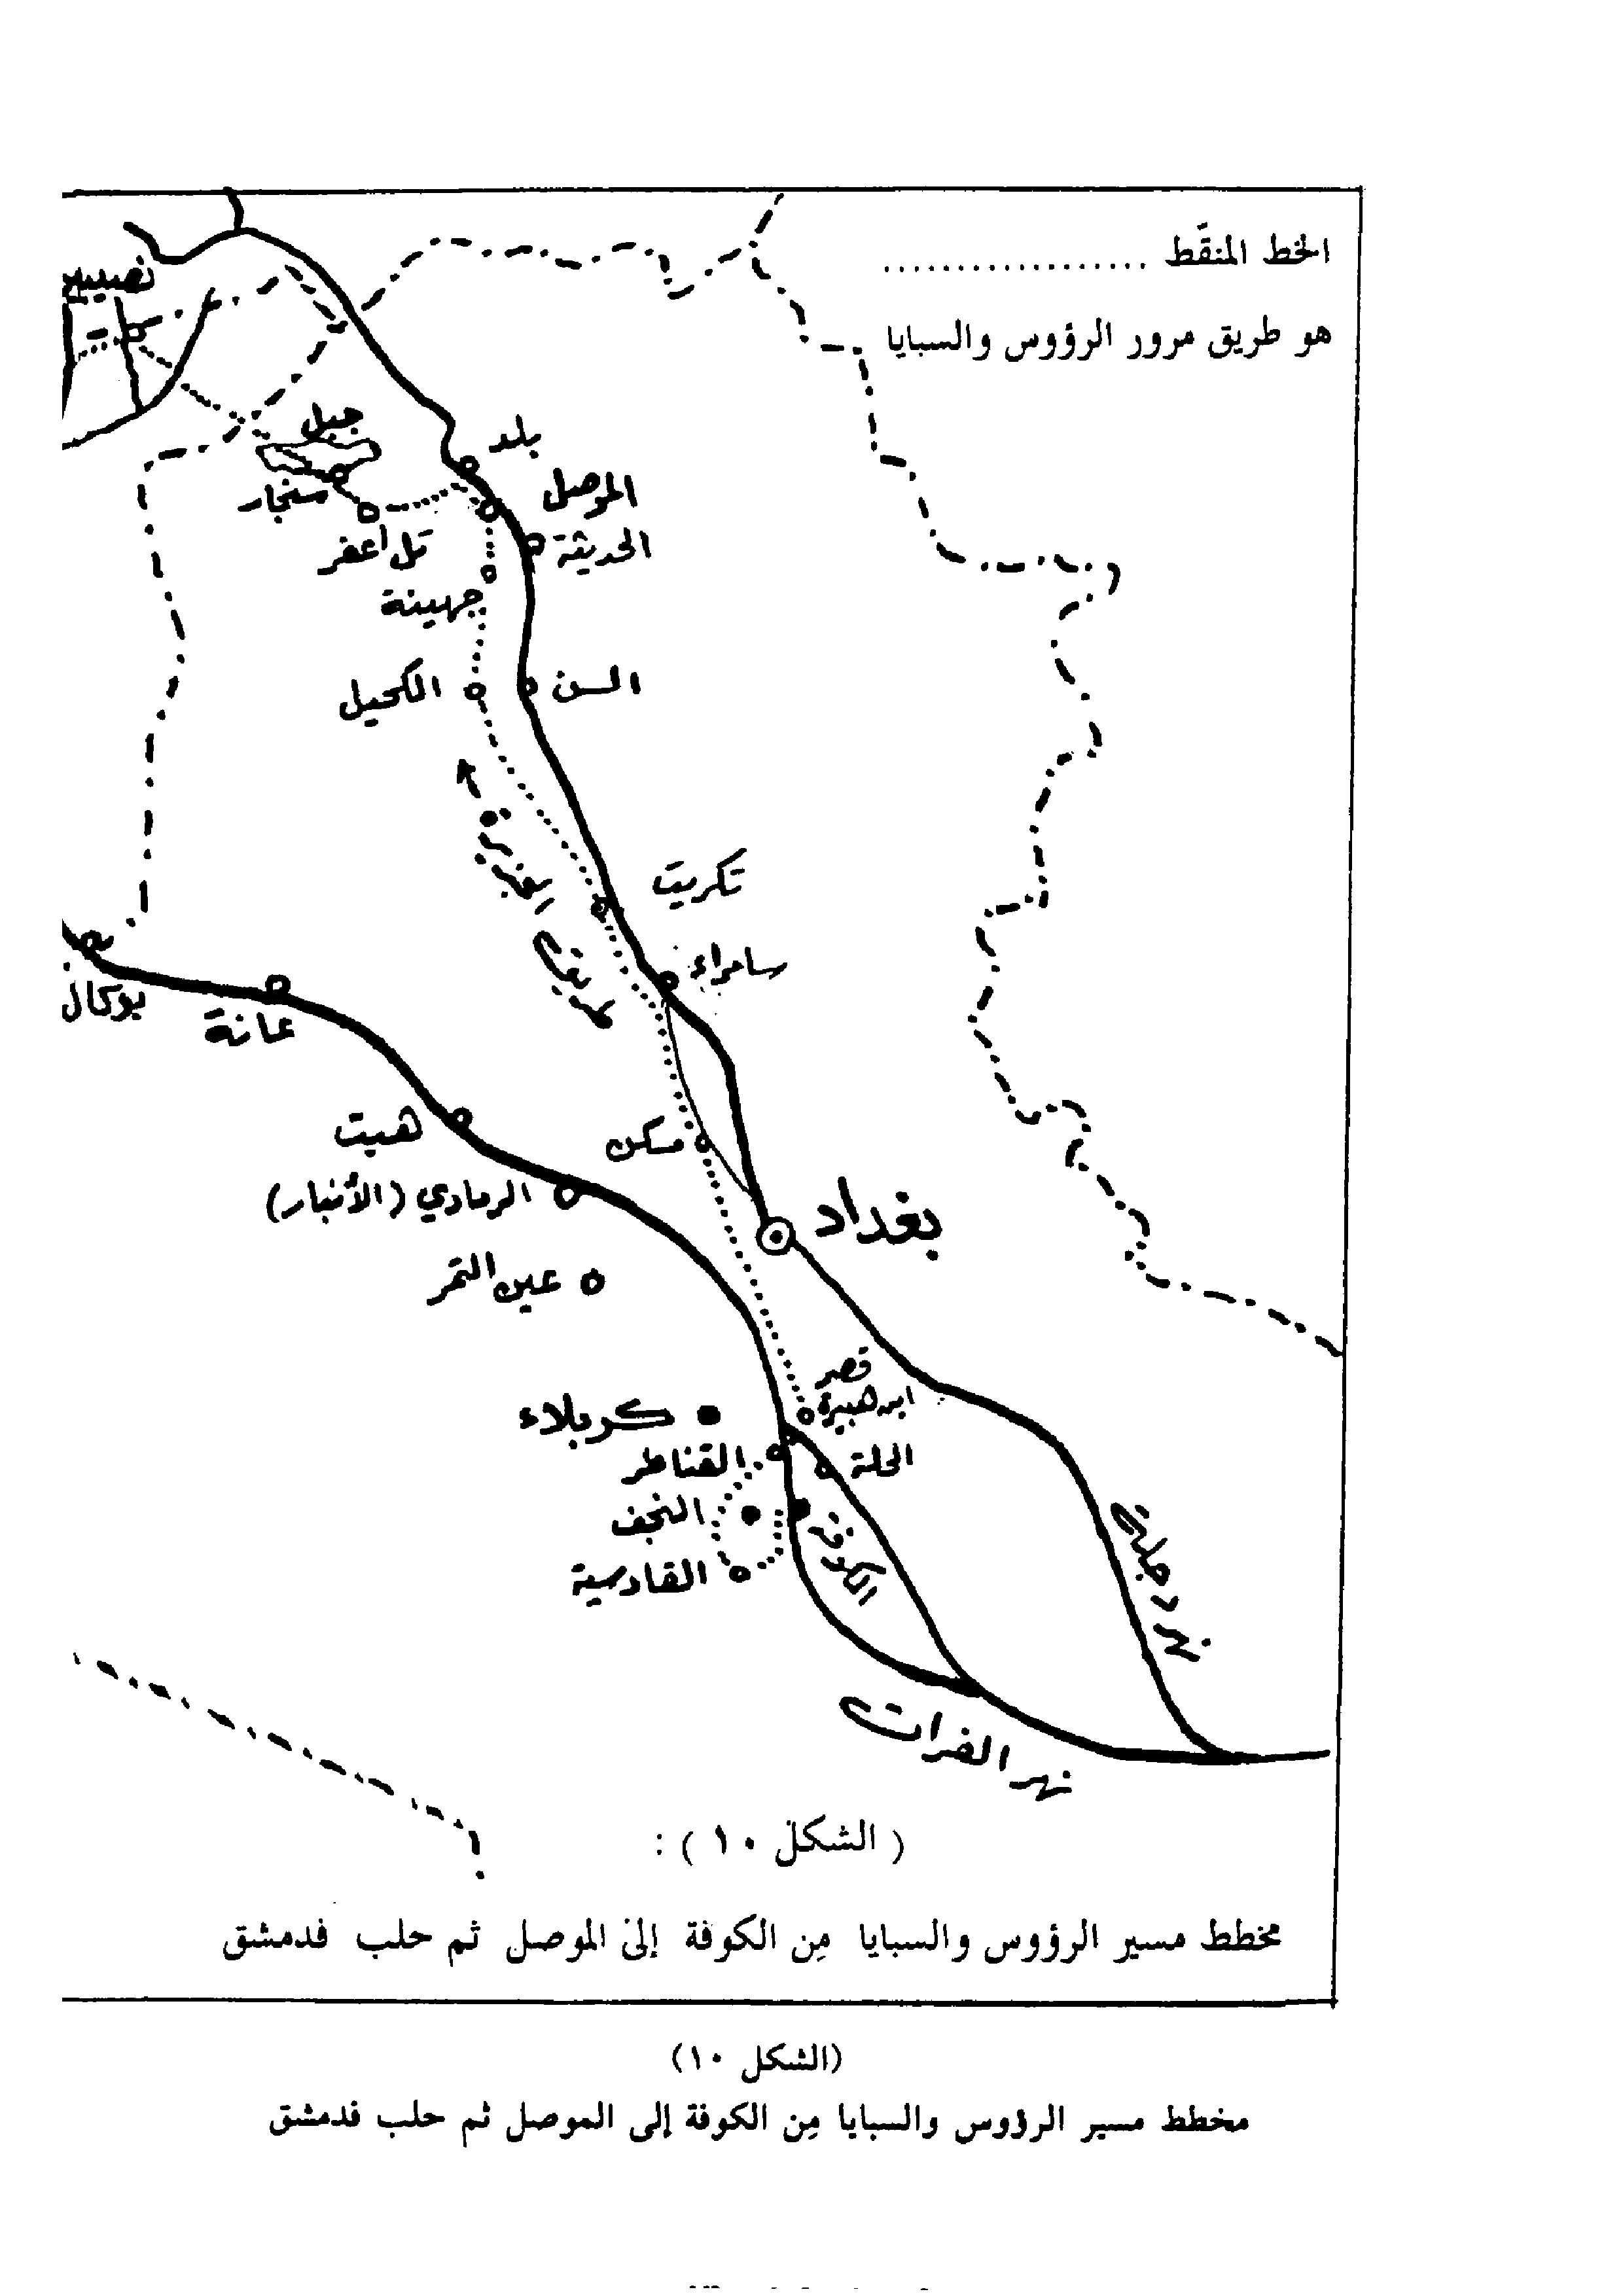 الخط المنقّط ..................
هو طريق مرور الرؤوس والسبايا
نصيبين
جبل
سنجار
بلد
الموصل
تل أعفر
الحديثة
جهينة
الكحيل
السن
تكريت
سامراء
طريق الجزيرة
بوكمال
عانة
هيت
مسكن
الرمادي (الأنبار)
بغداد
عين التمر
قصر
ابن هبيرة
كربلاء
القناطر
الحلة
النجف
الكوفة
القادسية
نهر دجلة
نهر الفرات
( الشكل ١٠ ) :
مخطط مسير الرؤوس والسبايا مِن الكوفة إلى الموصل ثم حلب فدمشق
(الشكل ١٠)
مخطط مسير الرؤوس والسبايا مِن الكوفة إلى الموصل ثم حلب فدمشق